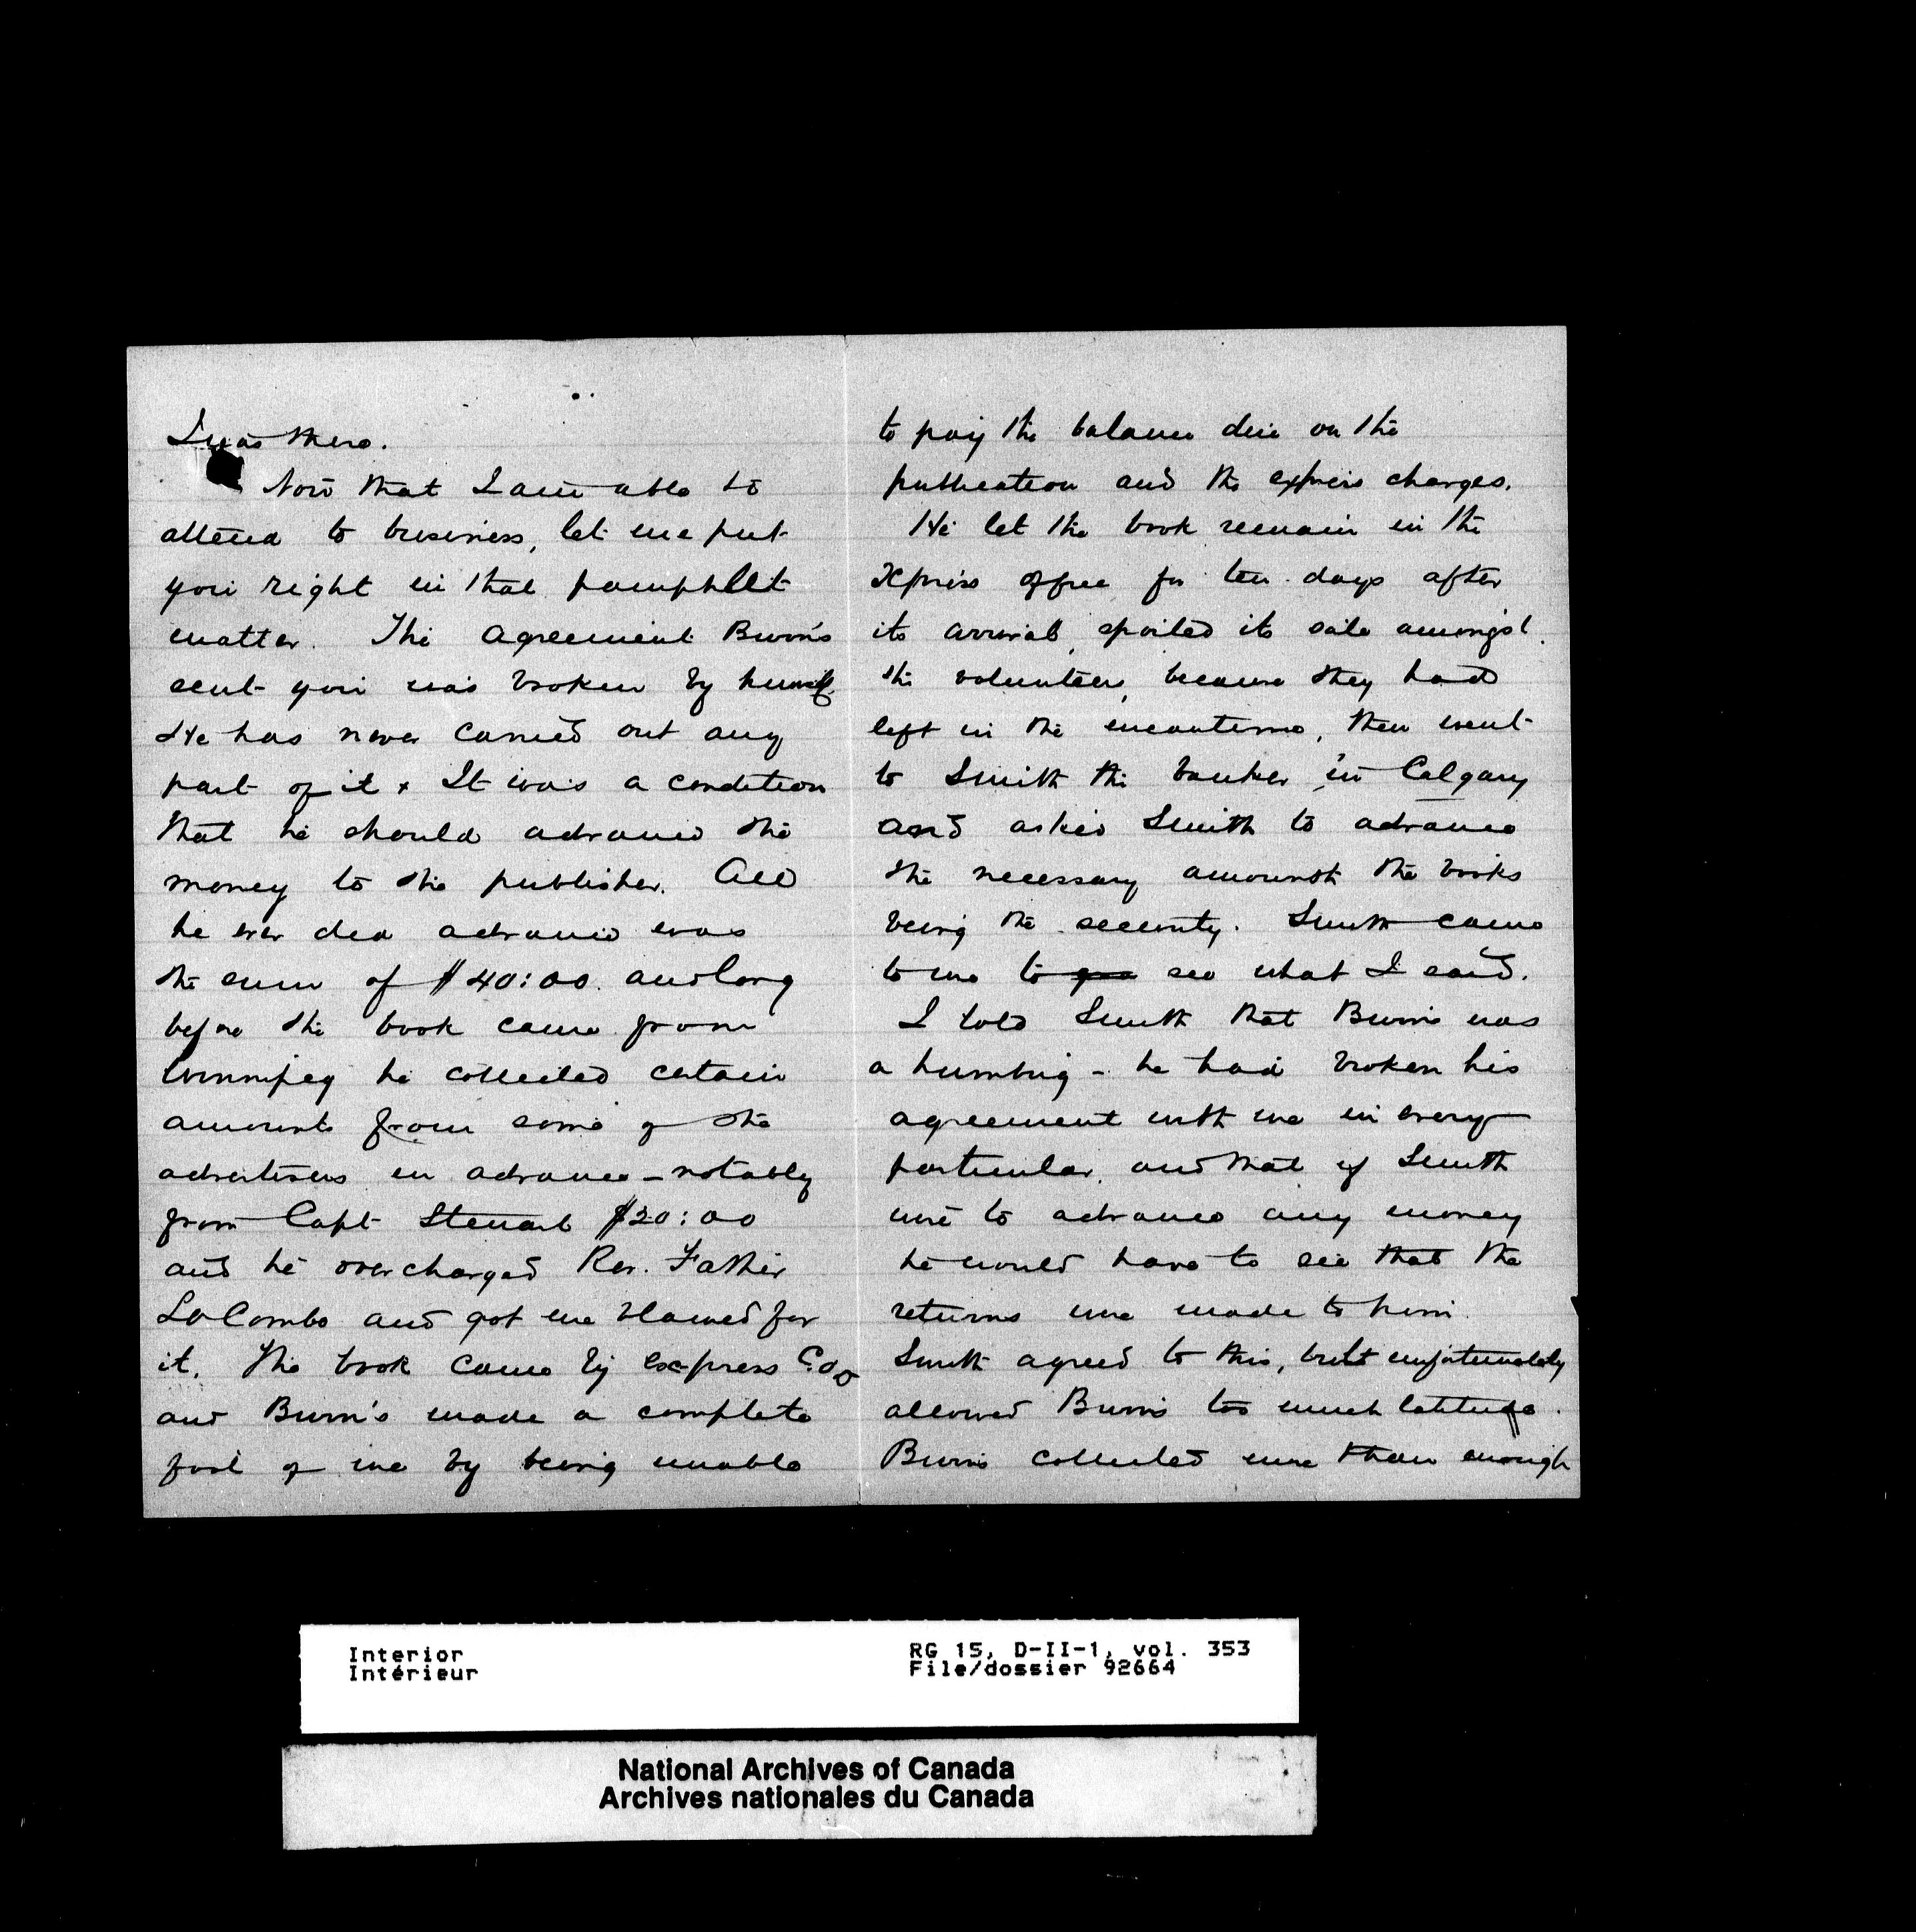 I was there.
Now that I am able to
attend to business, let me put
you right in that pamphlet
matter. The agreement Burns
sent you was broken by himself.
He has never carried out any
part of it x It was a condition
that he should advance the
money to the publisher. All
he ever did advance was
the sum of $40:00. and long
before the book came from
Winnipeg he collected certain
amounts from some of the
advertisers in advance - notably
from Capt Stewart $20:00
and he overcharged Rev. Father
LaCombe and got me blamed for
it. The book came by express Co
and Burn's made a complete
fool of me by being unable
to pay the balance due on the
publication and the express charges.
He let the book remain in the
Xpress office for ten days after
its arrival, spoiled its sale amongst
the volunteers, because they had
left in the meantime, then went
to Smith the banker in Calgary
and asked Smith to advance
the necessary amount the books
being the security. Smith came
to me to see what I said.
I told Smith that Burns was
a humbug - he had broken his
agreement with me in every
particular, and that if Smith
were to advance any money
he would have to see that the
returns were made to him.
Smith agreed to this, but unfortunately
allowed Burns too much latitude.
Burns collected more than enough
Interior
Intérieur
RG 15, D-II-1, vol. 353
File/dossier 92664
National Archives of Canada
Archives nationales du Canada